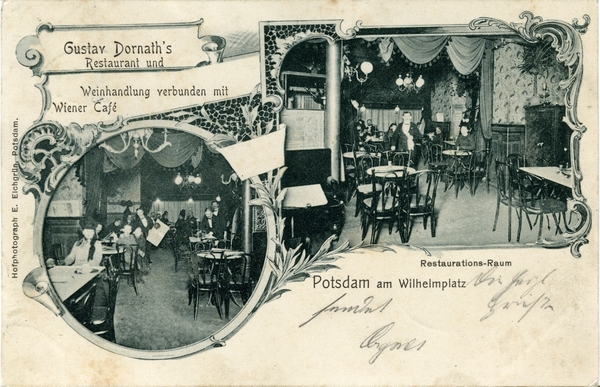 Gustav Dornath's
Restaurant und
Weinhandlung verbunden mit
Wiener Café
Hofphotograph E. Eichgrün-Potsdam.
Restaurations-Raum
Potsdam am Wilhelmplatz
sendet
Agnes